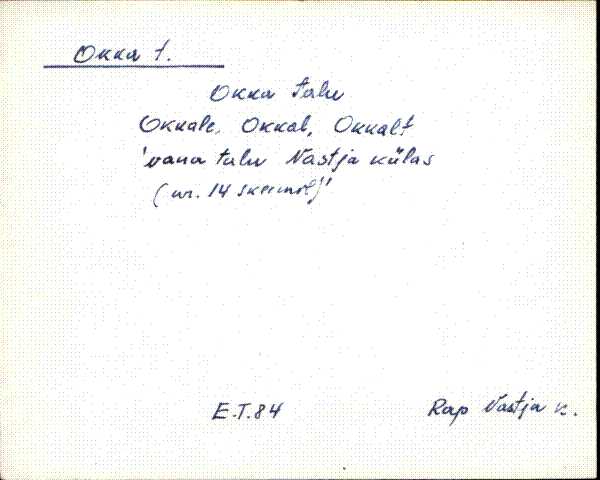 Okka t.
Okka talu
Okkale, Okkal, Okkalt
'vana talu Nastja külas
(nr. 14 skeemil)'
E.T.84
Rap Nastja k.